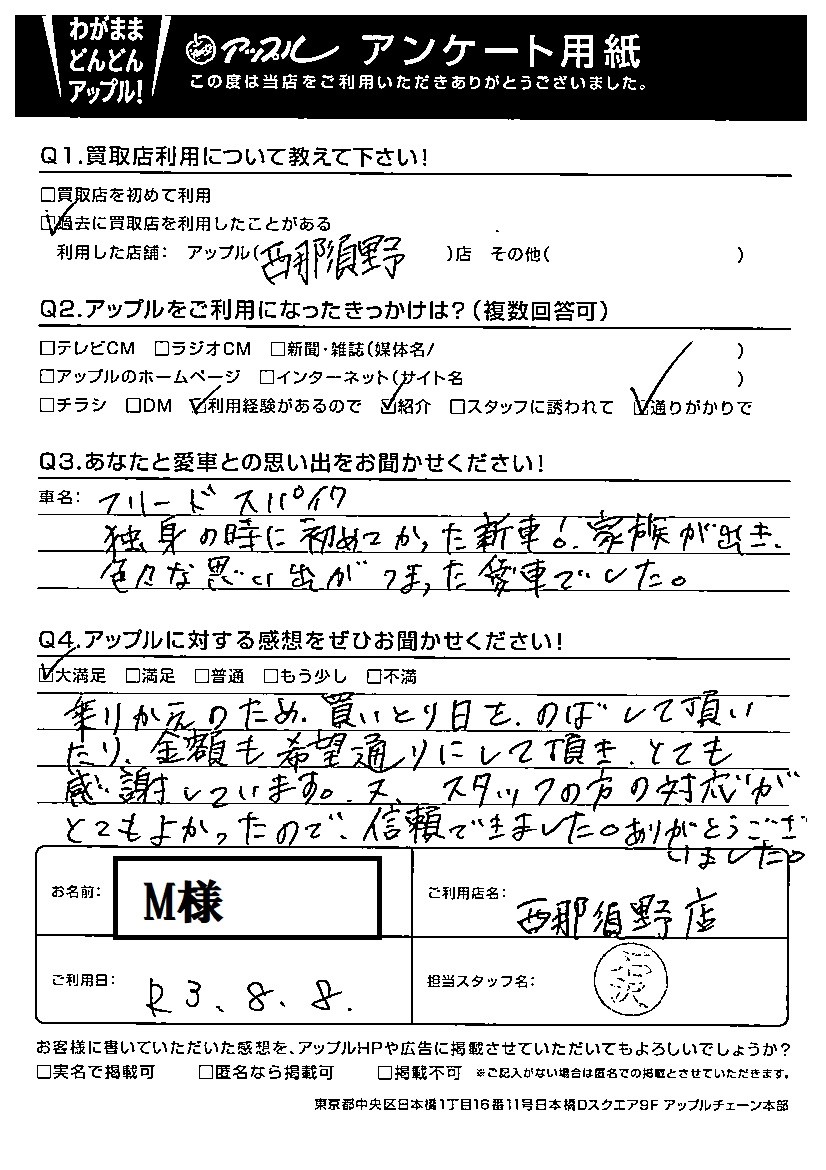 わがまま
どんどん
アップル!
アップル アンケート用紙
この度は当店をご利用いただきありがとうございました。
Q1.買取店利用について教えて下さい!
□買取店を初めて利用
☑過去に買取店を利用したことがある
利用した店舗: アップル(西那須野 )店 その他( )
Q2.アップルをご利用になったきっかけは?(複数回答可)
□テレビCM □ラジオCM □新聞・雑誌(媒体名/ )
□アップルのホームページ □インターネット(サイト名 )
□チラシ □DM ☑利用経験があるので ☑紹介 □スタッフに誘われて ☑通りがかりで
Q3.あなたと愛車との思い出をお聞かせください!
車名: フリードスパイク
独身の時に初めてかった新車!. 家族ができ、
色々な思い出がつまった愛車でした。
Q4.アップルに対する感想をぜひお聞かせください!
☑大満足 □満足 □普通 □もう少し □不満
乗りかえのため、買いとり日を、のばして頂い
たり、金額も希望通りにして頂き、とても
感謝しています。又、スタッフの方の対応が
とてもよかったので、信頼できました。ありがとうござ
いました。
お名前: M様
ご利用店名: 西那須野店
ご利用日: R3、8、8.
担当スタッフ名:
お客様に書いていただいた感想を、アップルHPや広告に掲載させていただいてもよろしいでしょうか?
□実名で掲載可 □匿名なら掲載可 □掲載不可 ※ご記入がない場合は匿名での掲載とさせていただきます。
東京都中央区日本橋1丁目16番11号日本橋Dスクエア9F アップルチェーン本部